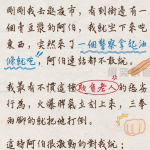 剛剛我去逛夜市，看到街邊有一
個賣豆漿的阿伯，我就坐下來吃
東西，突然來了一個警察拿起油
條就吃，阿伯連話都不敢說。
我最看不慣這種欺負老人的惡劣
行為，火爆脾氣立刻上來，三拳
兩腳的就把他打倒。
這時阿伯很激動的對我說：